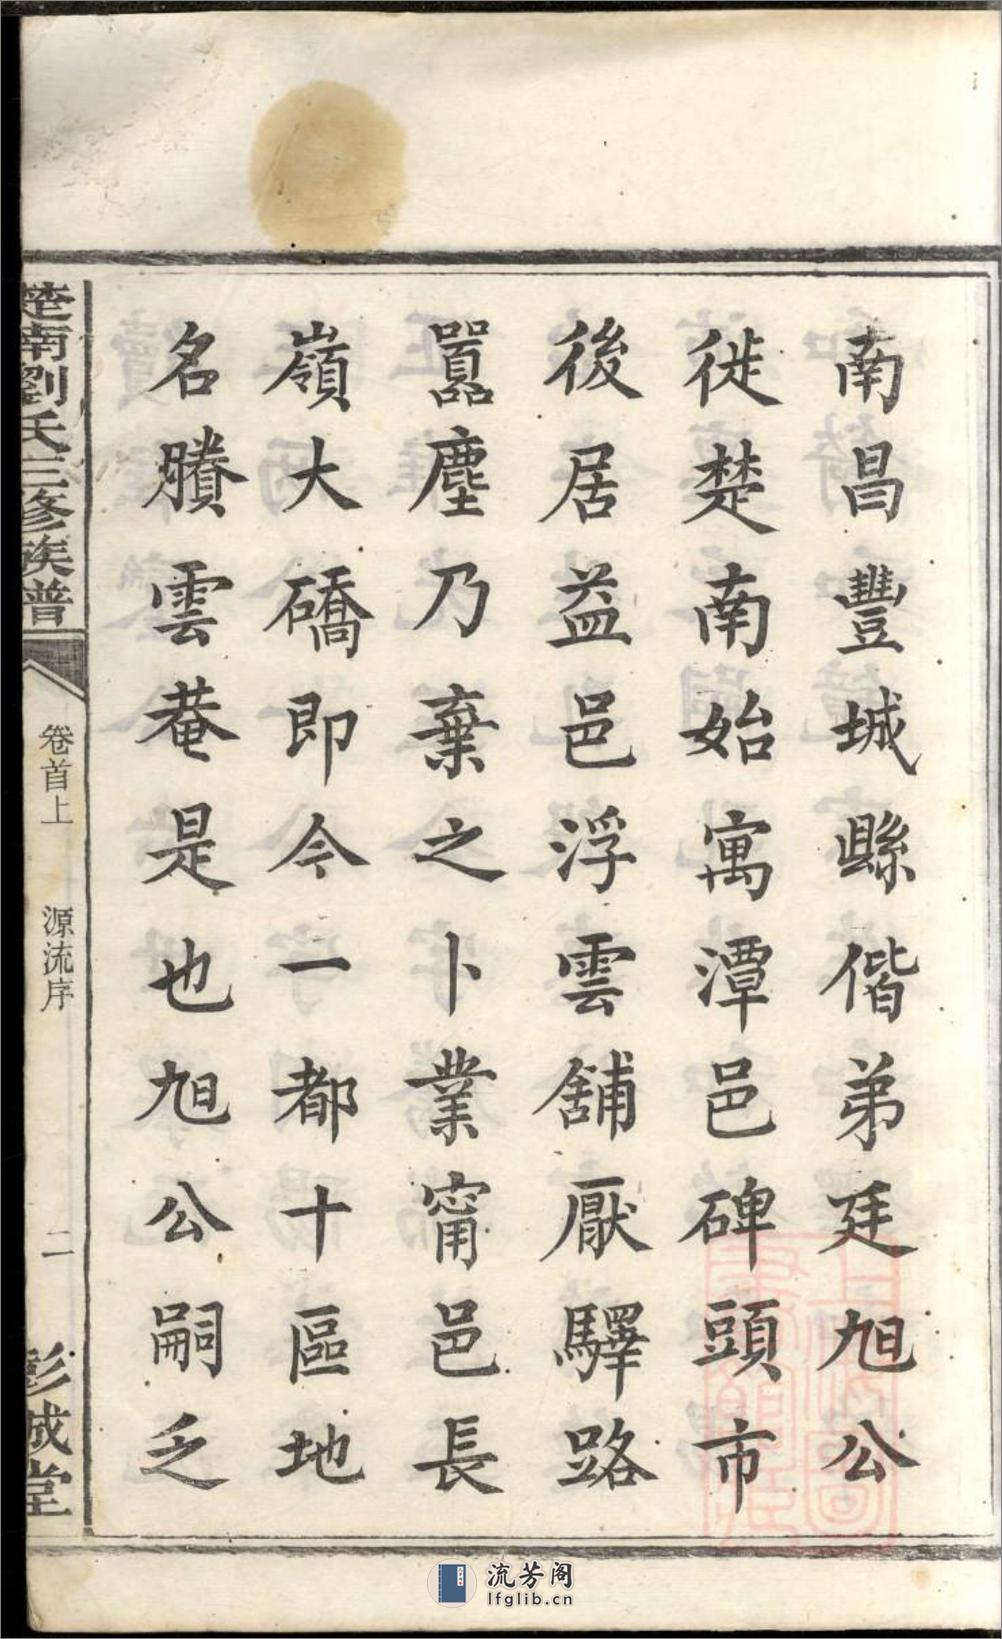 南昌豐城縣偕弟廷旭公
徙楚南始寓潭邑碑頭市
後居益邑浮雲舖厭驛路
囂塵乃棄之卜業甯邑長
嶺大礄即今一都十區地
名賸雲菴是也旭公嗣乏
楚南劉氏三修族譜
卷首上
源流序
二
彭城堂
流芳阁
lfglib.cn